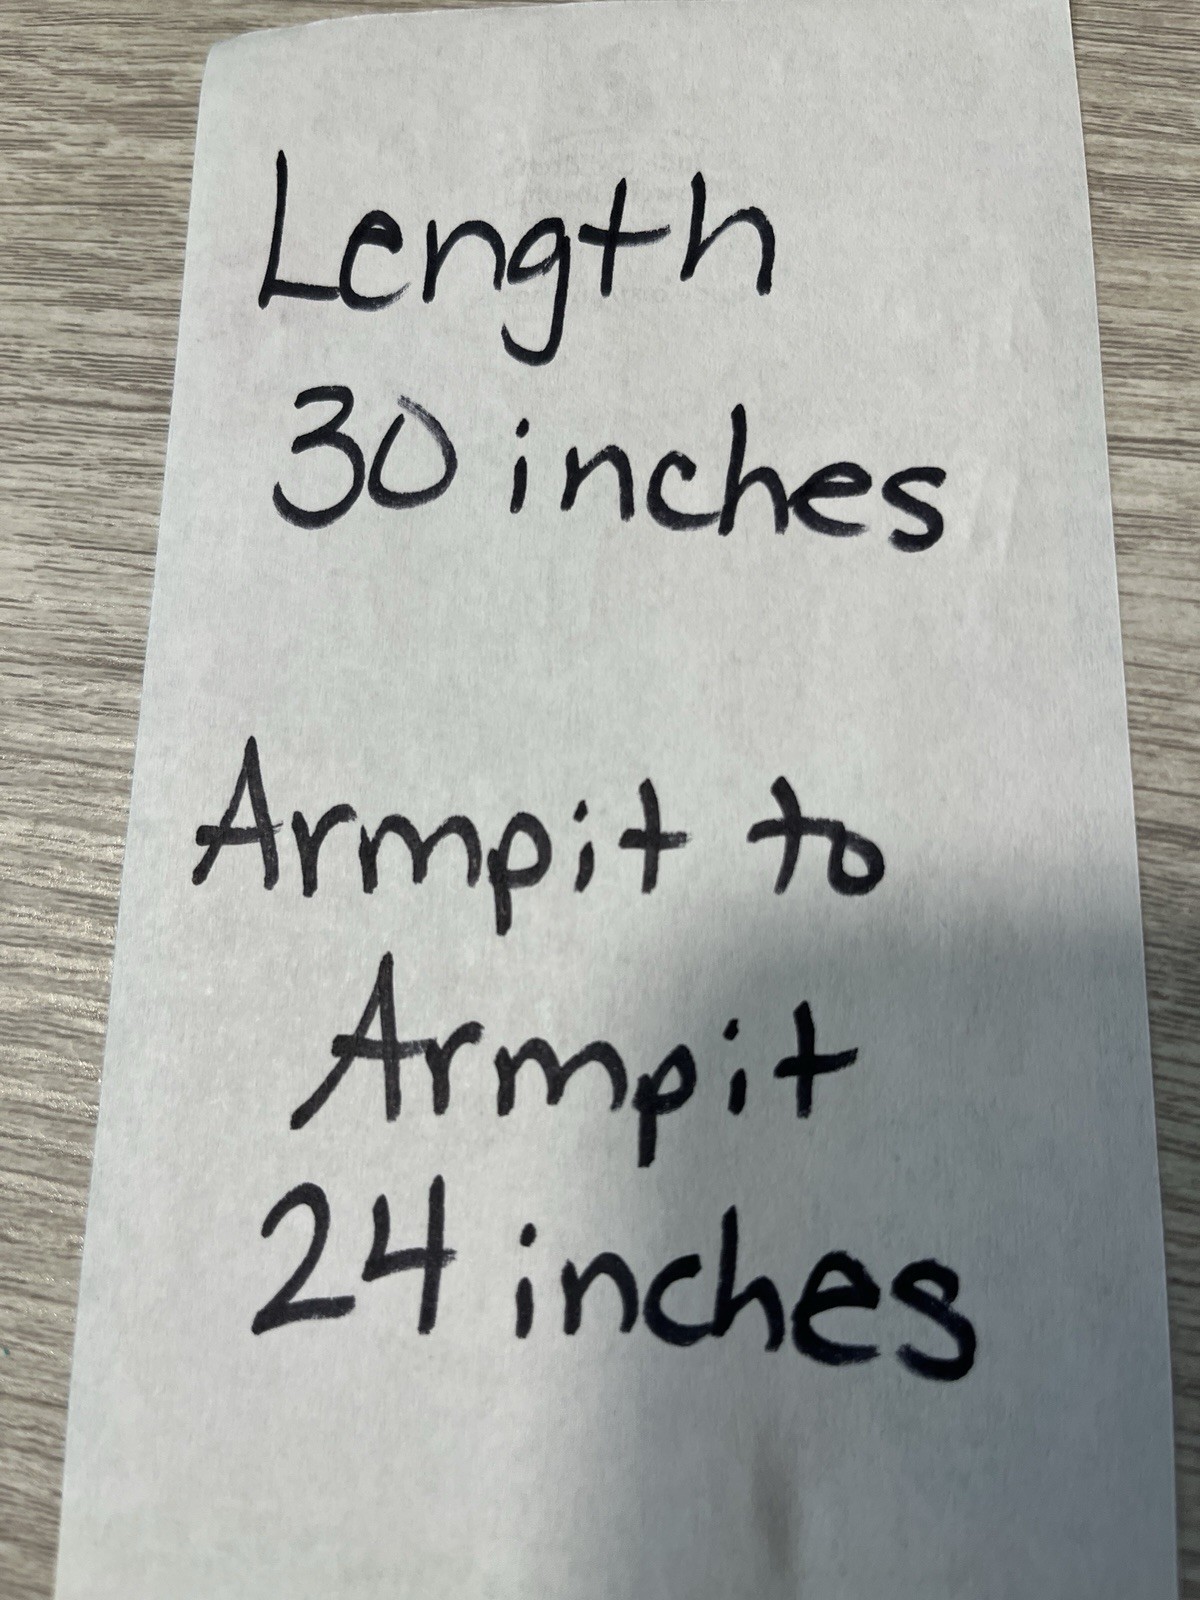 Length
30 inches
Armpit to
Armpit
24 inches